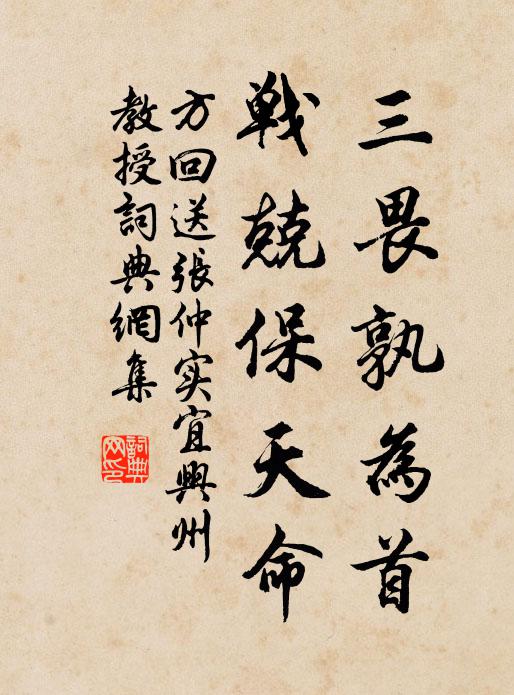 三畏孰為首
戰兢保天命
方回送張仲实宜興州
教授詞典網集
詞典网印